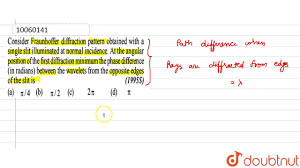 10060141
Consider Fraunhoffer diffraction pattern obtained with a
single slit illuminated at normal incidence. At the angular
position of the first diffraction minimum the phase difference
(in radians) between the wavelets from the opposite edges
of the slit is (1995S)
(a) π/4 (b) π/2 (c) 2π (d) π
Path difference when
Rays are diffracted from edge
= λ
doubtnut